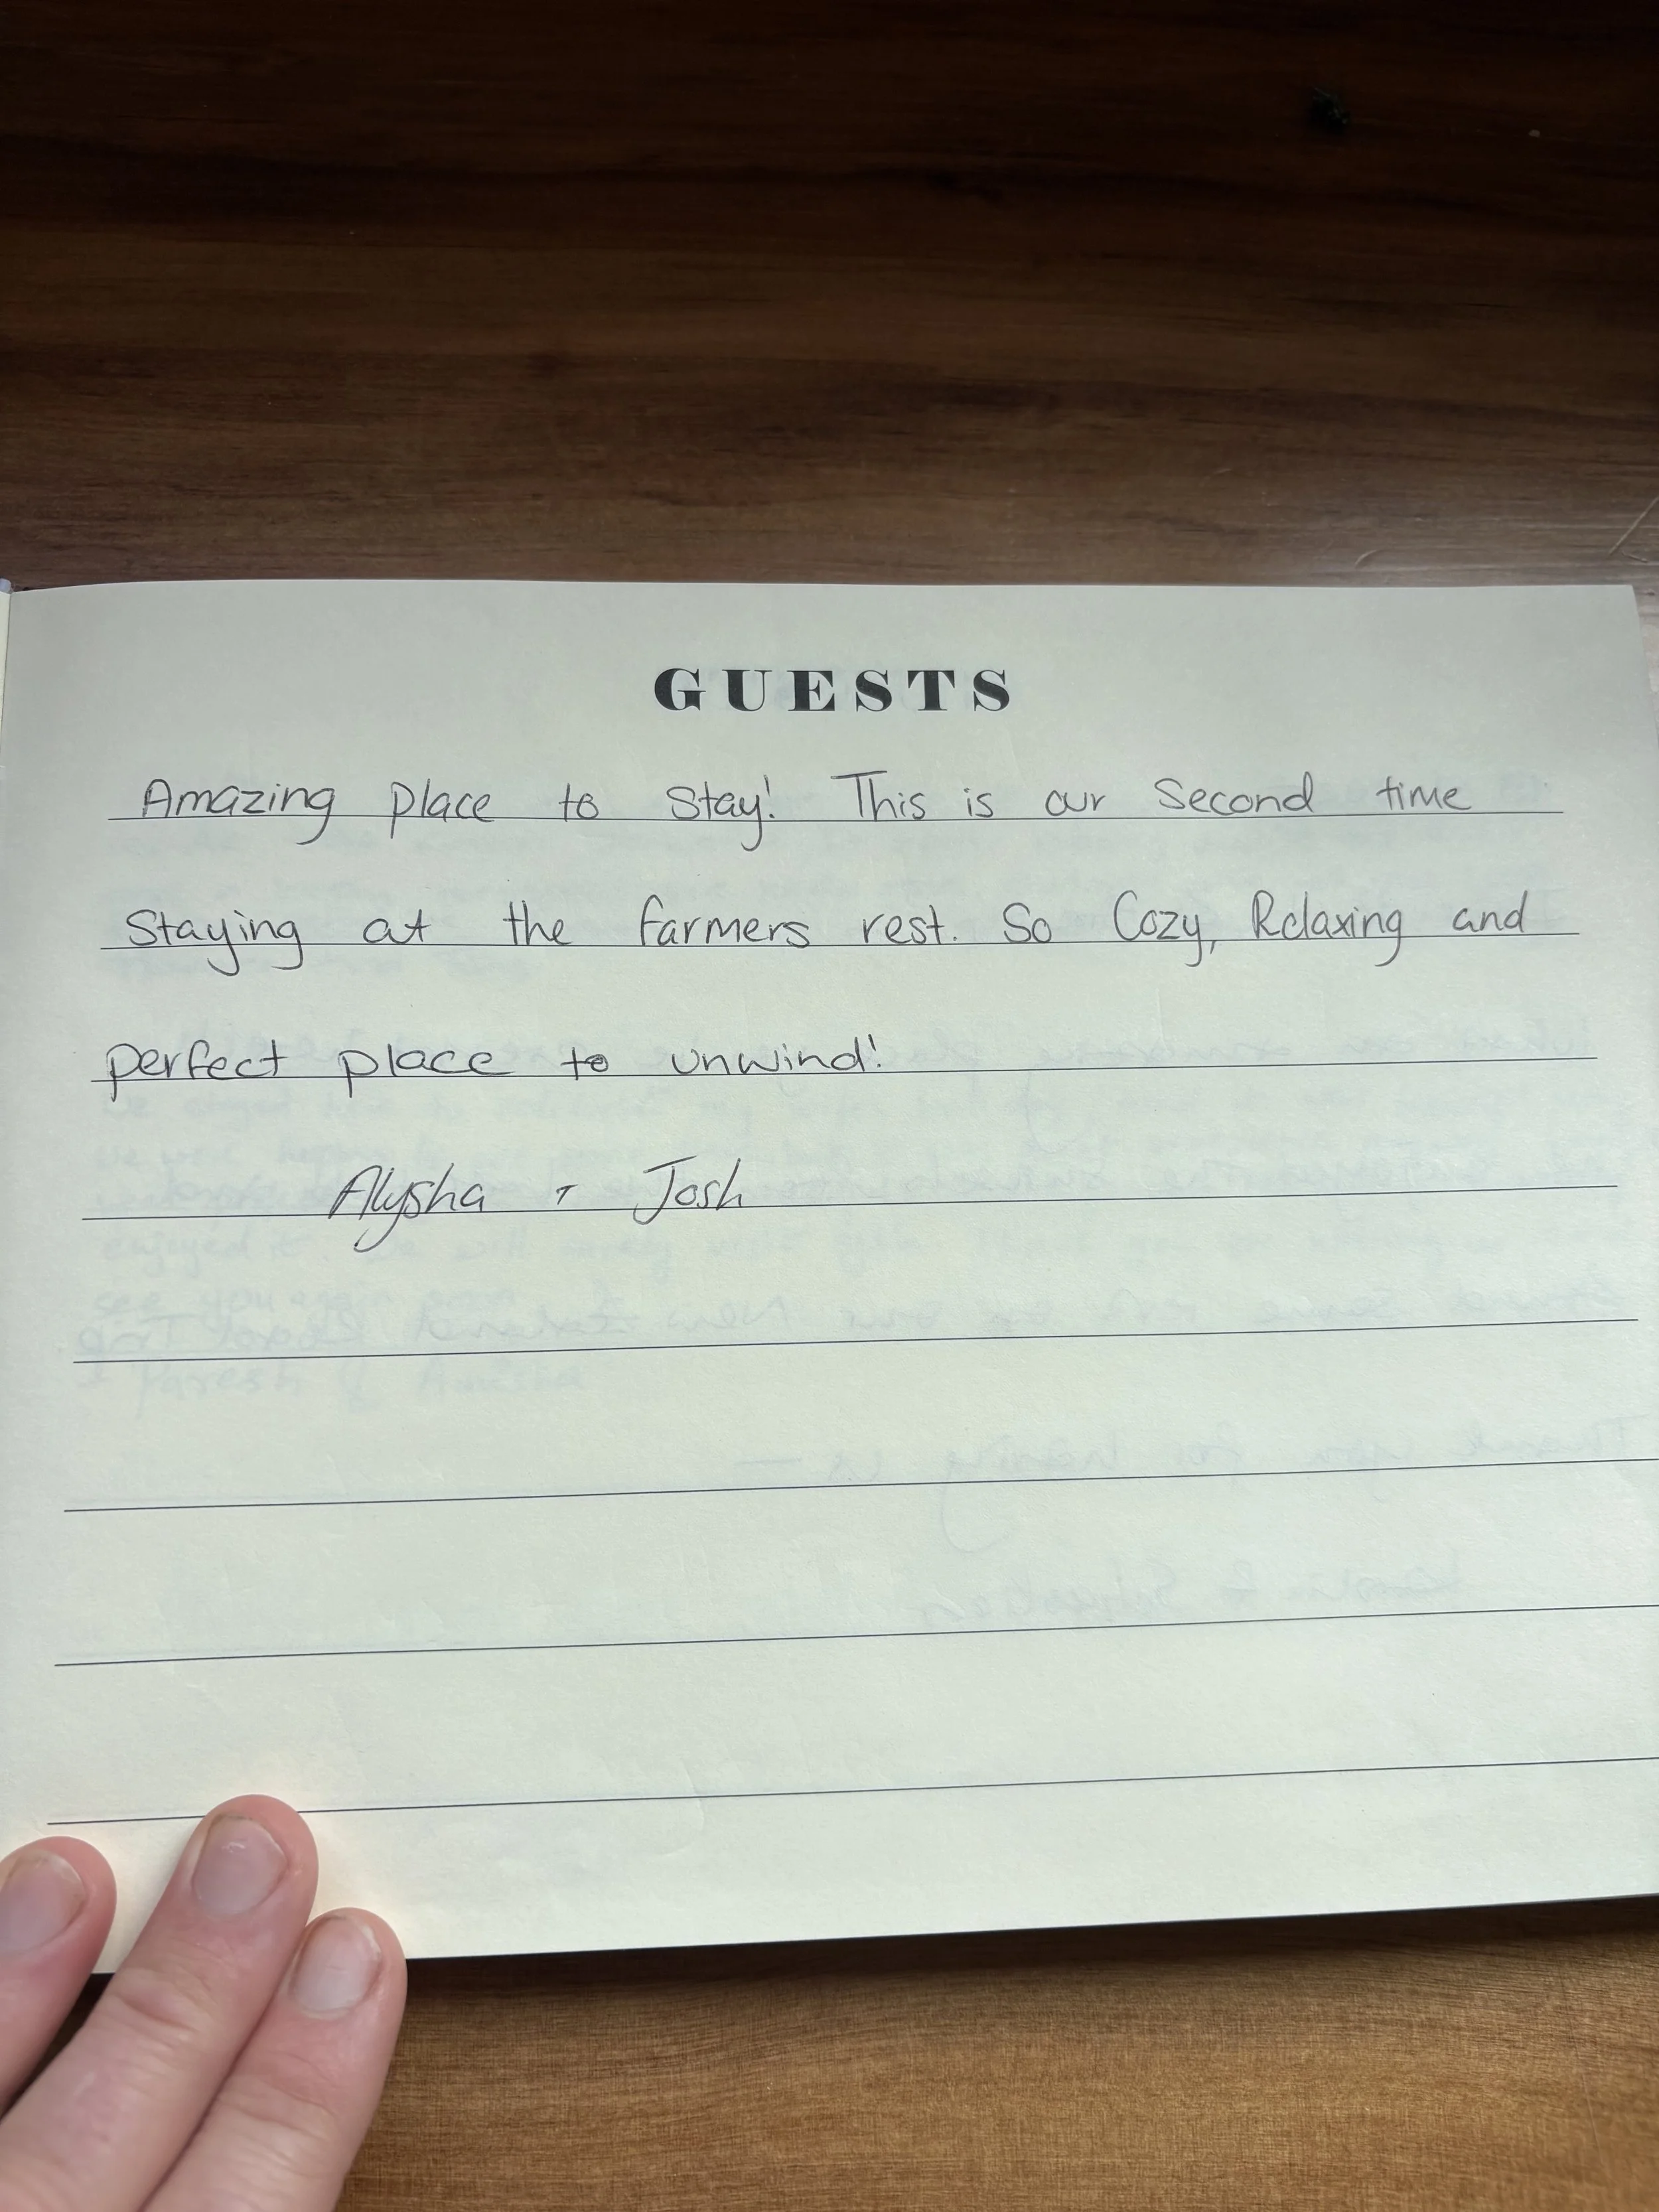 GUESTS
Amazing place to stay! This is our second time
Staying at the farmers rest. So Cozy, Relaxing and
perfect place to unwind!
Alysha + Josh